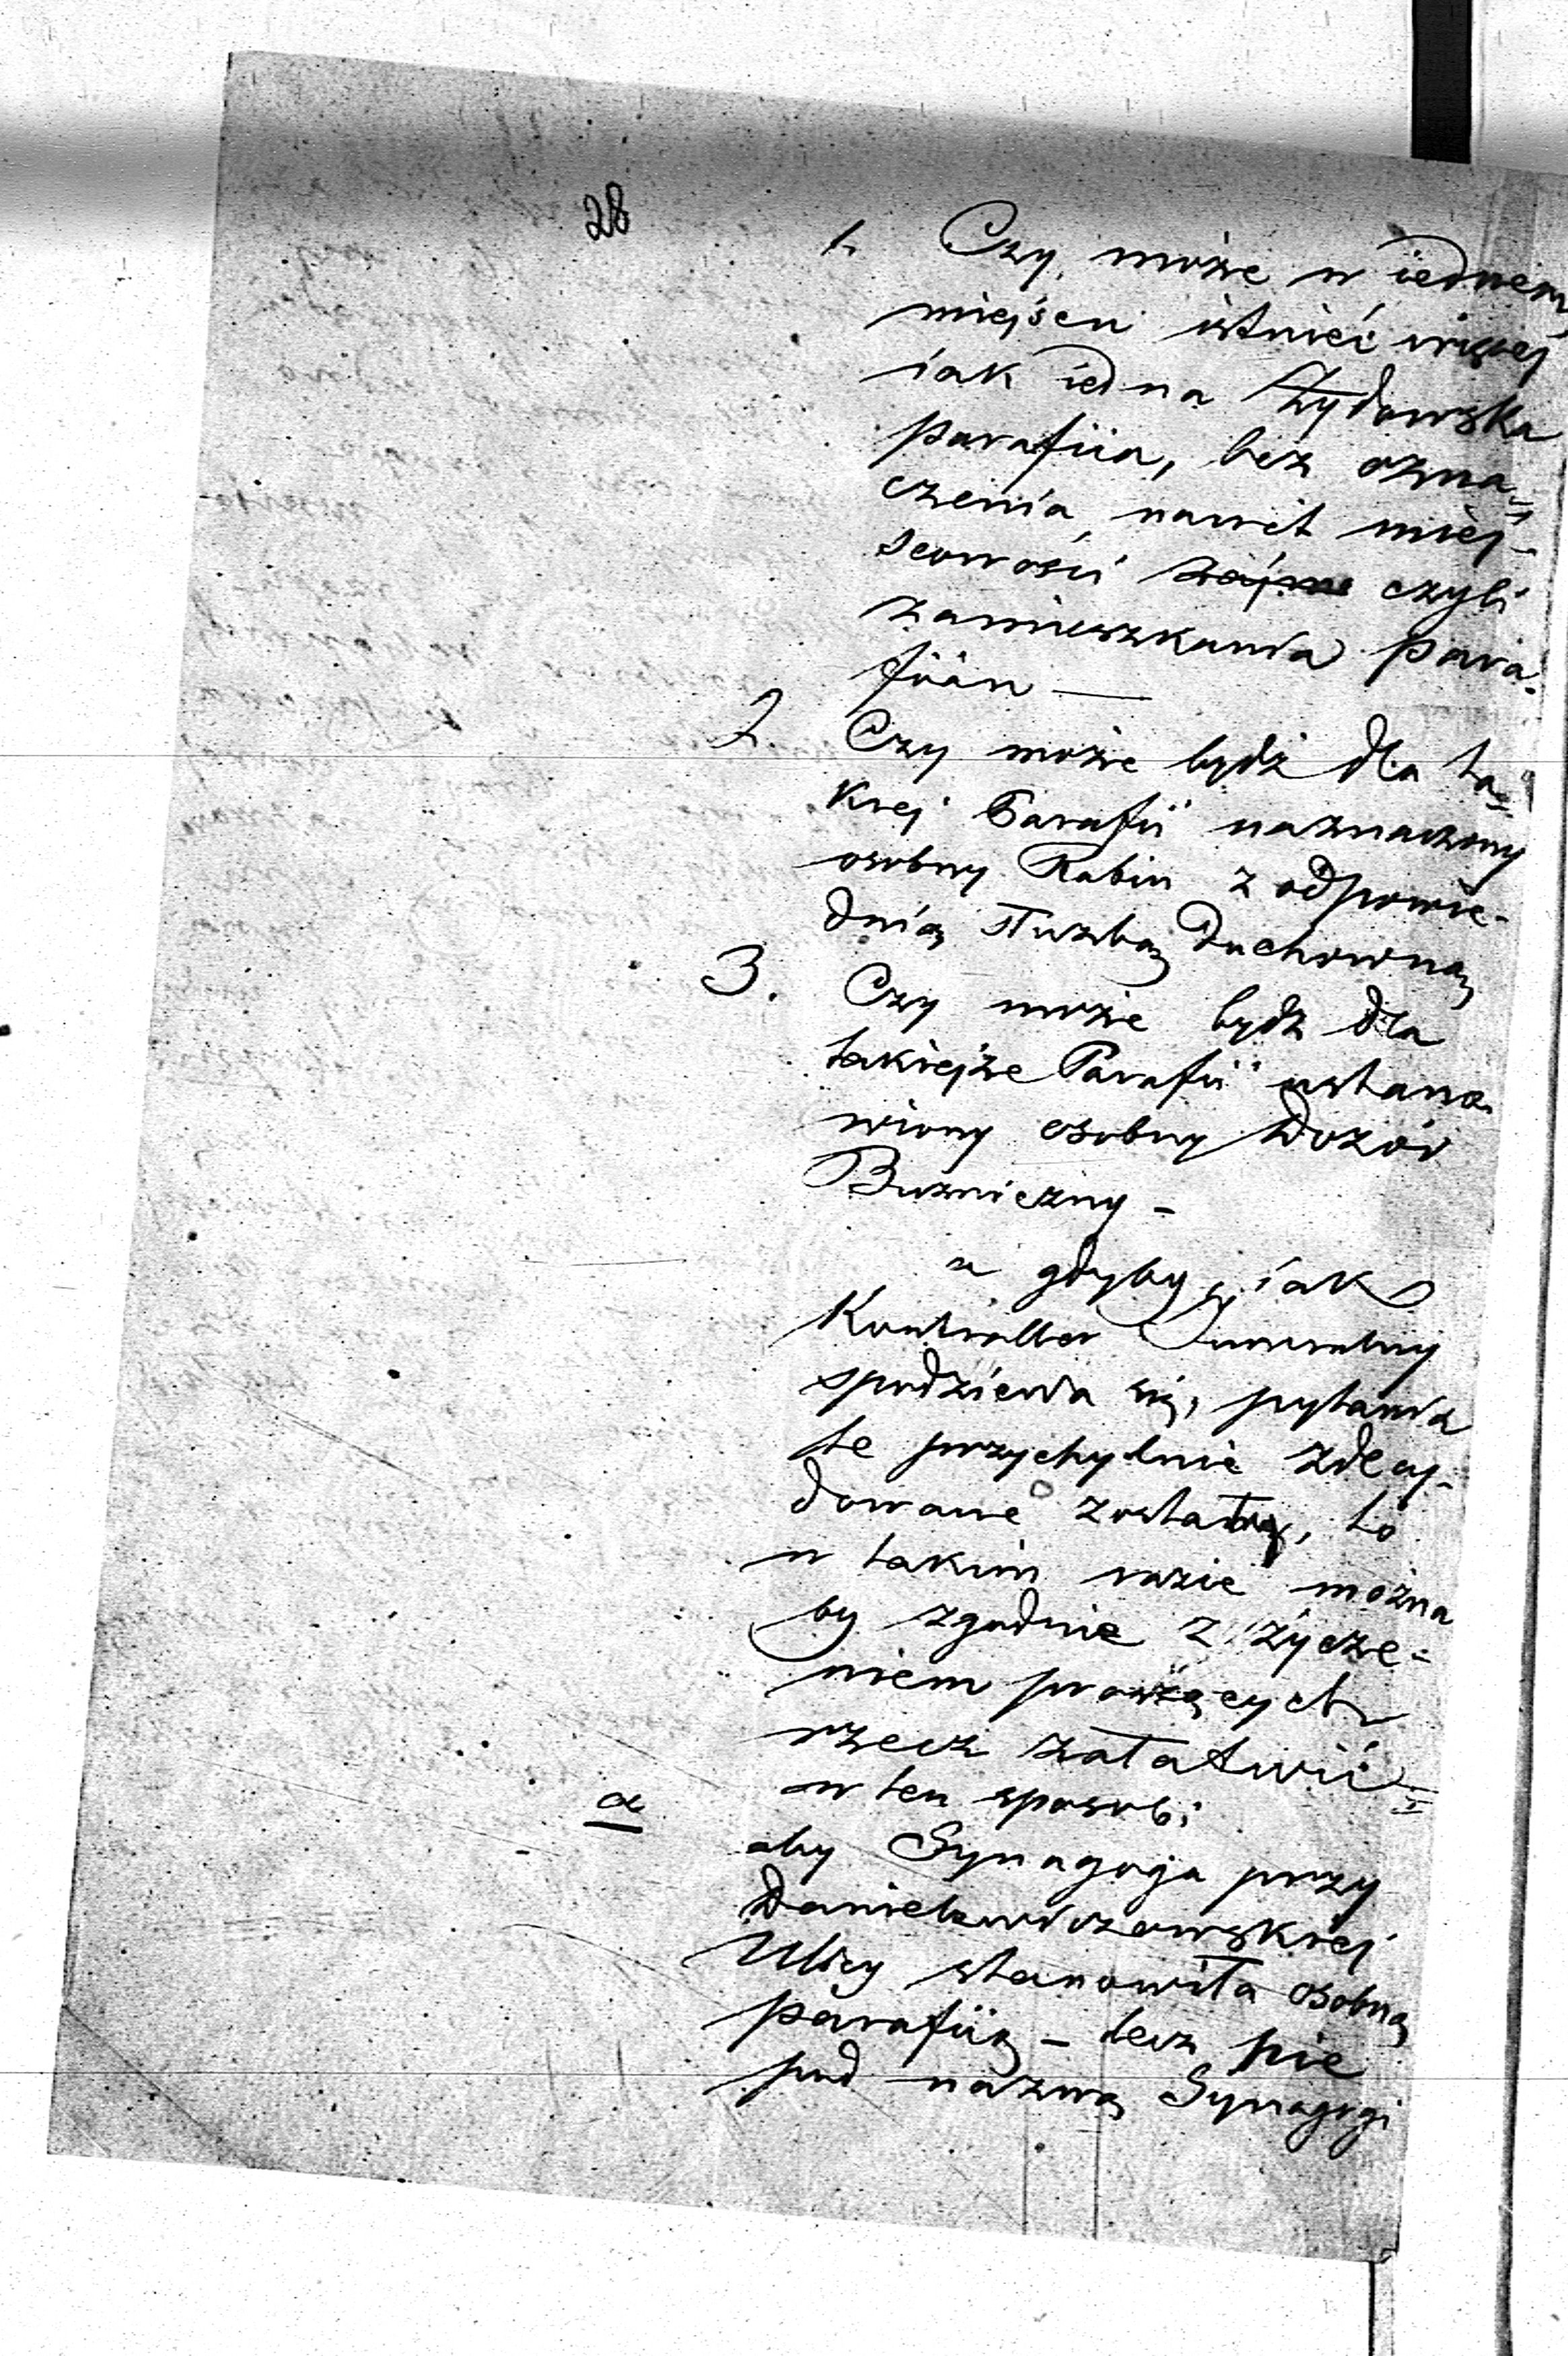 28
1. Czy może w iednem
miejscu istnieć więcej
iak iedna Żydowska
parafiia, bez ozna=
czenia nawet miej-
scowości czyli
zamieszkania para-
fiian —
2. Czy może bydź dla ta=
kiej Parafii naznaczony
osobny Rabin z odpowie-
dnią służbą Duchowną
3. Czy może bydź dla
takiejże Parafii ustano-
wiony osobny Dozór
Bużniczny –
a gdyby, iak
Kontroller Generalny
spodziewa się, pytania
te przychylnie zdecy-
dowane zostały, to
w takim razie można
by zgodnie z życze=
niem proszących
rzecz załatwić
w ten sposób:
a aby Synagoga przy
Danielewiczowskiej
Ulicy stanowiła osobną
parafiią – lecz nie
pod nazwą Synagogi